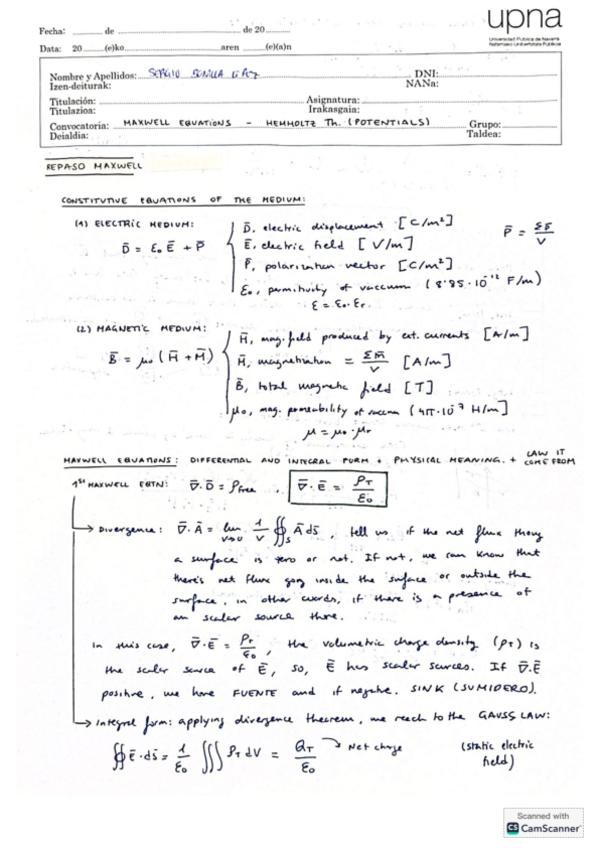 upna
Universidad Pública de Navarra
Nafarroako Unibertsitate Publikoa
Fecha: ........ de ........ de 20 ........
Data: 20 ........ (e)ko ........ aren ........ (e)(a)n
Nombre y Apellidos: SERGIO
Izen-deiturak:
DNI:
NANa:
Titulación:
Titulazioa:
Asignatura:
Irakasgaia:
Convocatoria: MAXWELL EQUATIONS - HEMHOLTZ Th. (POTENTIALS)
Deialdia:
Grupo:
Taldea:
REPASO MAXWELL
CONSTITUTIVE EQUATIONS OF THE MEDIUM:
(1) ELECTRIC MEDIUM:
D̄ = ε₀ Ē + P̄
D̄, electric displacement [C/m²]
Ē, electric field [V/m]
P̄, polarization vector [C/m²]
ε₀, permitivity of vaccum (8'85·10⁻¹² F/m)
ε = ε₀·εr
P̄ = Σp̄/V
(2) MAGNETIC MEDIUM:
B̄ = μ₀ (H̄ + M̄)
H̄, mag. field produced by ext. currents [A/m]
M̄, magnetization = Σm̄/V [A/m]
B̄, total magnetic field [T]
μ₀, mag. permeability of vaccum (4π·10⁻⁷ H/m]
μ = μ₀·μr
MAXWELL EQUATIONS: DIFFERENTIAL AND INTEGRAL FORM + PHYSICAL MEANING. + LAW IT COME FROM
1st MAXWELL EQTN: ∇̄·D̄ = ρfree , ∇̄·Ē = ρT/ε₀
→ Divergence: ∇̄·Ā = lim V→0 1/V ∯s Ā ds̄ , tell us if the net flux through
a surface is zero or not. If not, we can know that
there's net flux going inside the surface or outside the
surface, in other words, if there is a presence of
an scalar source there.
In this case, ∇̄·Ē = ρT/ε₀, the volumetric charge density (ρT) is
the scalar source of Ē, so, Ē has scalar sources. If ∇̄·Ē
positive, we have FUENTE and if negative. SINK (SUMIDERO).
→ Integral form: applying divergence theorem, we reach to the GAUSS LAW:
∯ Ē·ds̄ = 1/ε₀ ∭ ρT dV = QT/ε₀ → Net charge (static electric field)
Scanned with
CS CamScanner